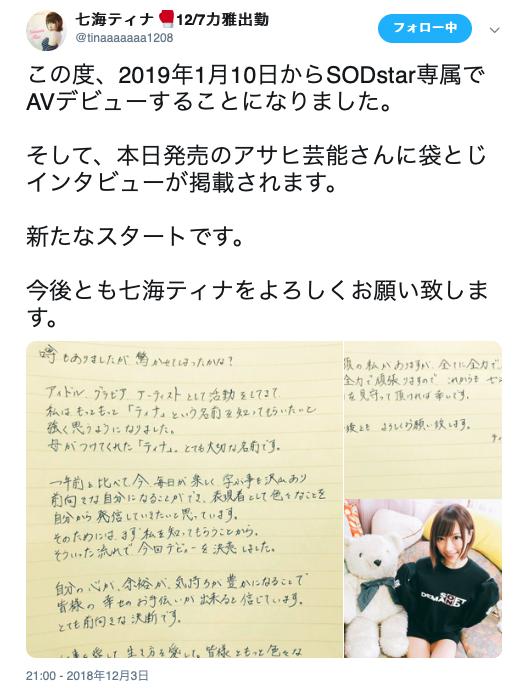 七海ティナ🥊12/7力雅出勤
@tinaaaaaaa1208
フォロー中
この度、2019年1月10日からSODstar専属で
AVデビューすることになりました。
そして、本日発売のアサヒ芸能さんに袋とじ
インタビューが掲載されます。
新たなスタートです。
今後とも七海ティナをよろしくお願い致しま
す。
噂もありましたが驚かせてしまったかな?
アイドル、グラビア、アーティストとして活動をしてきて
私はもっともっと「ティナ」という名前を知ってもらいたいと
強く思うようになりました。
母がつけてくれた「ティナ」。とても大切な名前です。
一年前と比べて今、毎日が楽しく学ぶ事も沢山あり
前向きな自分になることができ、表現者として色々なことを
自分から発信していきたいと思っています。
そのためには、まず私を知ってもらうことから。
そういった流れで今回デビューを決意しました。
自分の心が、余裕が、気持ちが豊かになることで
皆様の幸せのお手伝いが出来ると信じています。
とても前向きな決断です。
を愛して生き方を愛して。皆様ともっと色々な
の私がおりますが、全てに全力で
全力で頑張りますので これからも
を見守って頂ければ幸いです。
よろしくお願い致します。
21:00 - 2018年12月3日